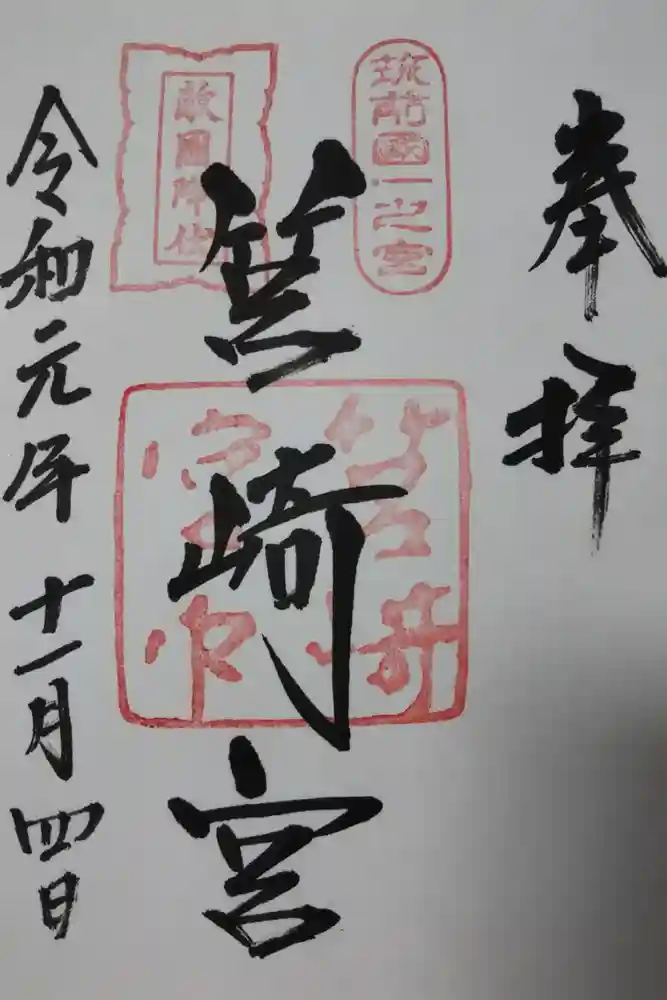 奉拝
筑前國一之宮
筥崎宮
敵國降伏
筥崎宮
令和元年十一月四日